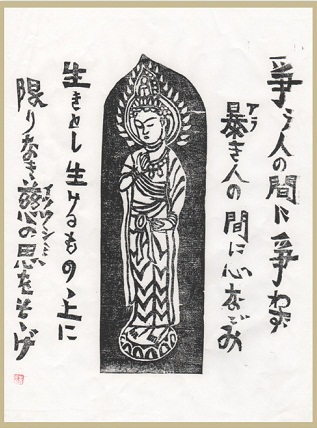 爭う人の間に爭わず
暴き人の間に心なごみ
アラ
生きとし生けるもの上に
限りなき慈の思をそゝげ
イツクシミ